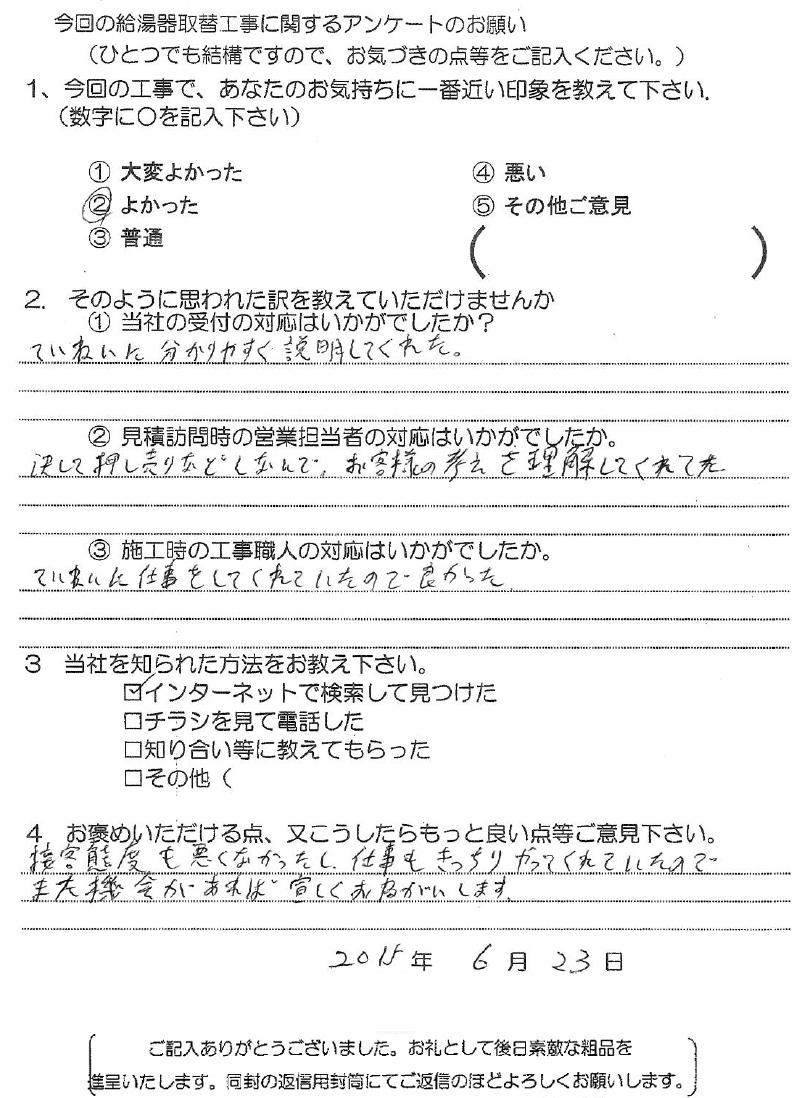 今回の給湯器取替工事に関するアンケートのお願い
（ひとつでも結構ですので、お気づきの点等をご記入ください。）
1、今回の工事で、あなたのお気持ちに一番近い印象を教えて下さい．
（数字に〇を記入下さい）
① 大変よかった ④ 悪い
② よかった ⑤ その他ご意見
③ 普通 （ ）
2．そのように思われた訳を教えていただけませんか
① 当社の受付の対応はいかがでしたか？
ていねいに分かりやすく説明してくれた。
② 見積訪問時の営業担当者の対応はいかがでしたか。
決して押し売りなどしなんで、お客様の考えを理解してくれてた
③ 施工時の工事職人の対応はいかがでしたか。
ていねいに仕事をしてくれていたので良かった.
3 当社を知られた方法をお教え下さい。
☑インターネットで検索して見つけた
□チラシを見て電話した
□知り合い等に教えてもらった
□その他（
4 お褒めいただける点、又こうしたらもっと良い点等ご意見下さい。
接客態度も悪くなかったし、仕事もきっちりやってくれていたので
また機会があれば宜しくおねがいします.
2015年 6月 23日
ご記入ありがとうございました。お礼として後日素敵な粗品を
進呈いたします。同封の返信用封筒にてご返信のほどよろしくお願いします。